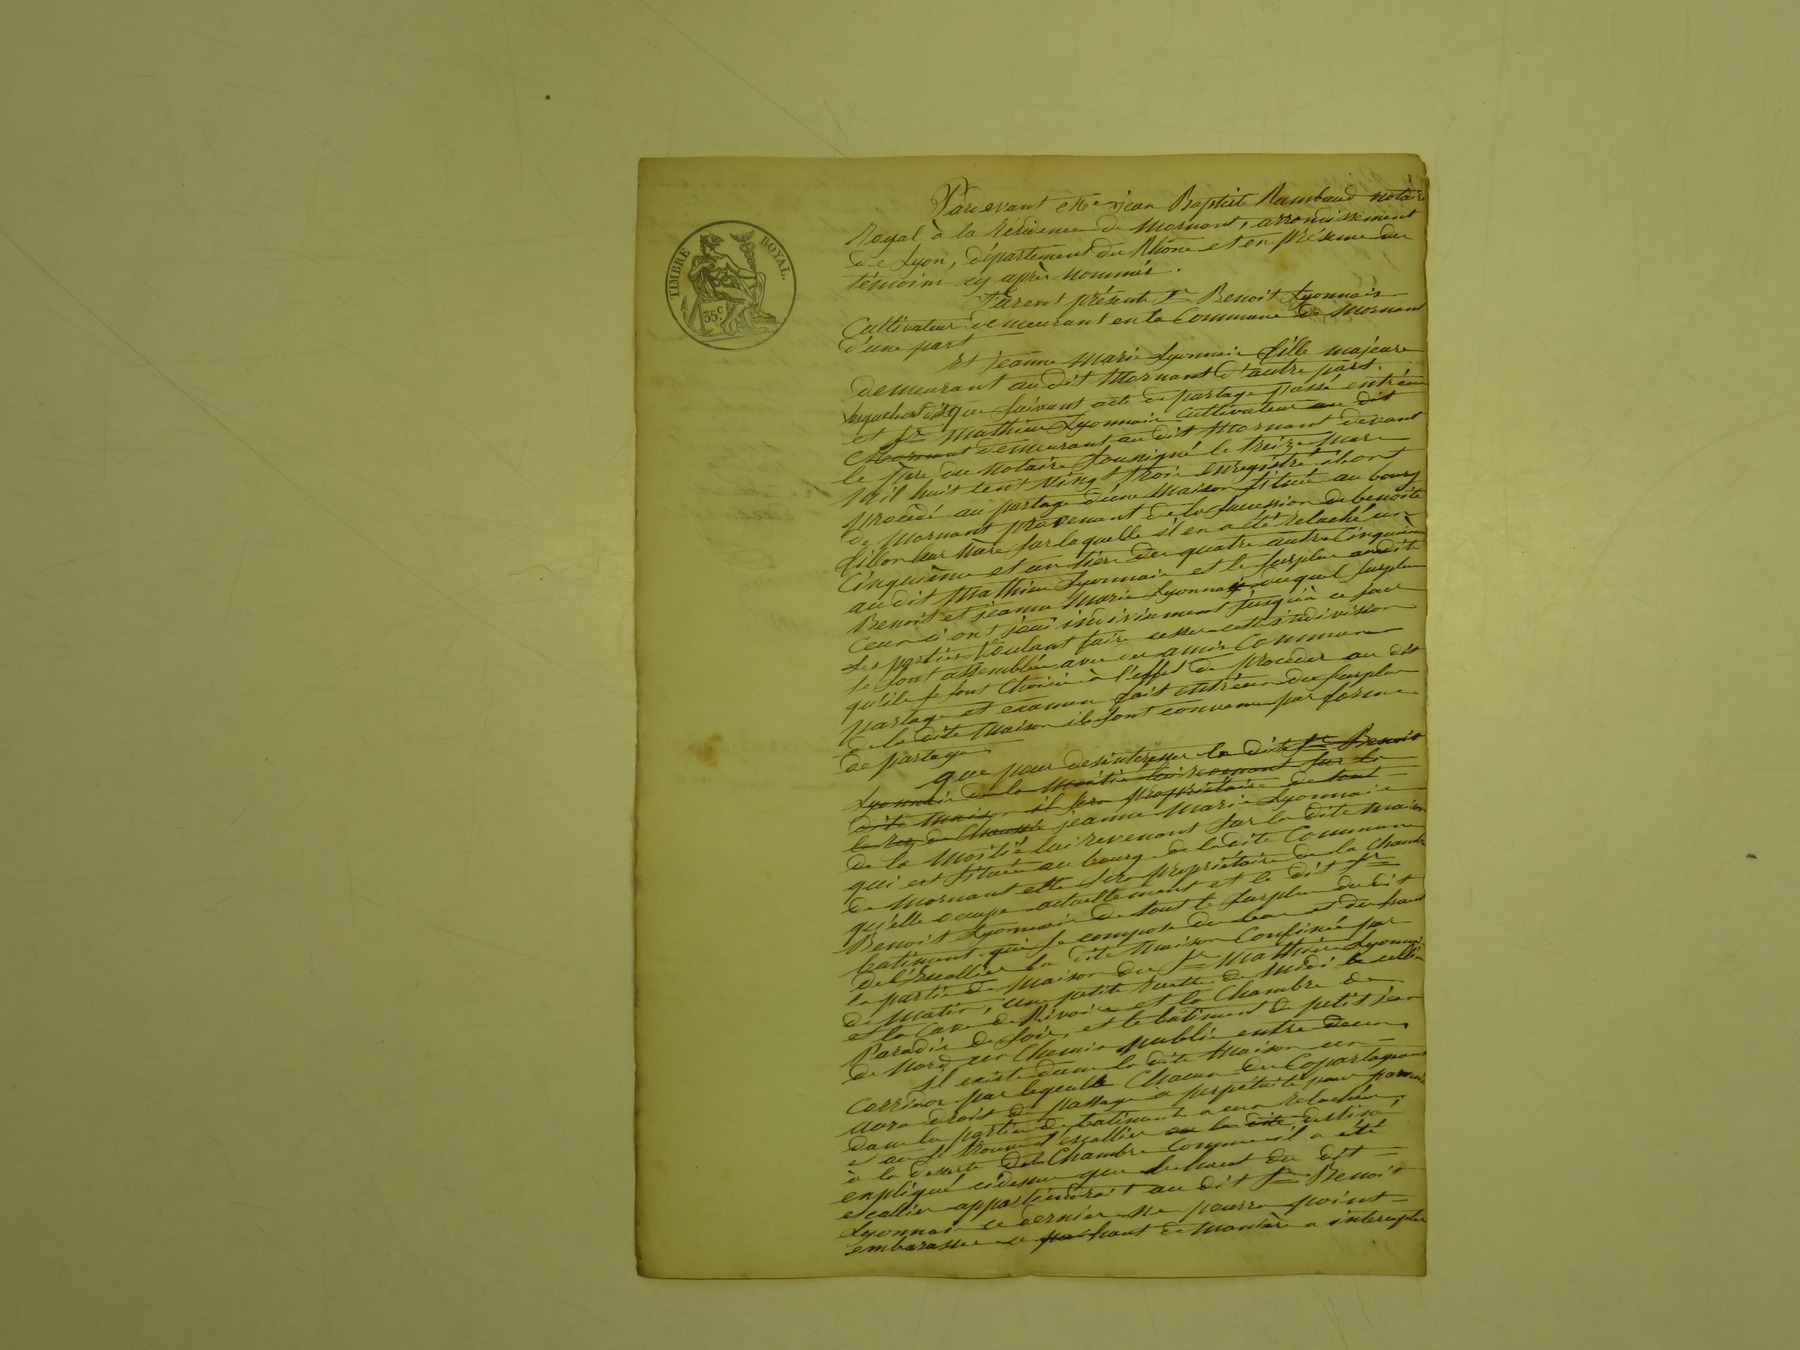 TIMBRE ROYAL.
35.c
Pardevant Me jean Baptiste Rambaud notaire
Royal, à la Résidence de Mornant, arrondissement
de Lyon, département du Rhône et en présence des
témoins cy après nommés.
furent présent Sr Benoit Lyonnais
Cultivateur demeurant en la Commune de Mornant
d'une part
Et jeanne Marie Lyonnais fille majeure
demeurant au dit Mornant d'autre part.
Lesquels ont dit que suivant acte de partage passé entréux
et Sr Mathieu Lyonnais Cultivateur au dit
Mornant demeurant au dit Mornant devant
le père du notaire soussigné le treize Mars
Mil huit cent vingt trois enregistré ils ont
procédé au partage d'une Maison située au bourg
de Mornant provenant de la succession de benoite
fillon leur Mère sur laquelle il en a été relaché un
Cinquième et un tiers des quatre autres Cinquièmes
au dit Mathieu Lyonnais et le surplus audit
Benoit et jeanne Marie Lyonnais duquel surplus
Ceux ci ont joui indivisement jusqu'à ce jour
Les parties Voulant faire cesser cette indivision
se sont assemblées avec des amis Communs
qu'ils se sont Choisis à l'effet de procéder au dit
partage et examen fait entréux du surplus
de la dite Maison ils sont convenus par forme
de partage
que pour désintéresser la dite Sr Benoit
Lyonnais de la Moitié lui revenant sur la
dite Maison il sera propriétaire de tout
le rez de Chaussé jeanne Marie Lyonnais
de la Moitié lui revenant sur la dite Maison
qui est située au bourg de la dite Commune
de Mornant elle sera propriétaire de la Chambre
qu'elle occupe actuellement et le dit Sr
Benoit Lyonnais de tout le surplus du dit
batiment qui se compose du bas et du haut
de l'Escallier la dite Maison Confinée par
la partie de Maison du Sr Mathieu Lyonnais
de Matin, une petite ruette de Midi le cellier
et la Cave de Rivoire et la Chambre de
Paradis de soir, et le batiment de petit jean
de Nord un Chemin public entre deux,
Il existe dans la dite Maison un
Corridor par lequelle Chacun des Copartageans
aura droit de passage à perpétuité pour parvenir
dans les parties de batiments a eux relachées,
et où se trouve l'escallier ou la dite destiné
à la deserte de la Chambre Comme il a été
expliqué cidessus que le haut du dit
escalier appartiendrait au dit Sr Benoit
Lyonnais ce dernier ne pourra point
embarasser ce pas haut de manière a intercepter